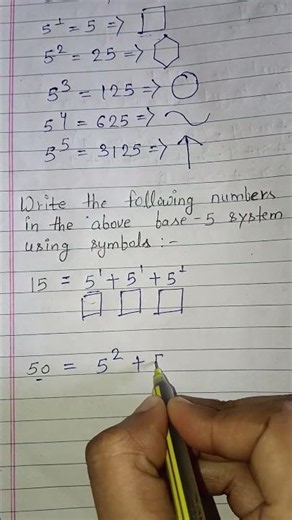 5¹ = 5 =>
5² = 25 =>
5³ = 125 =>
5⁴ = 625 =>
5⁵ = 3125 =>
Write the following numbers
in the above base-5 system
using symbols:-
15 = 5¹ + 5¹ + 5¹
50 = 5² +